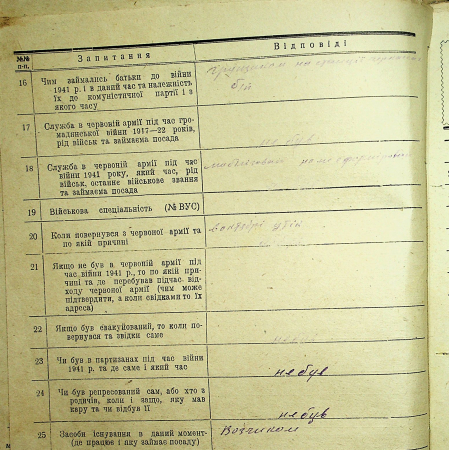 №№
п-п.
Запитання
Відповіді
16
Чим займались батьки до війни
1941 р. і в даний час та належність
їх до комуністичної партії і з
якого часу
17
Служба в червоній армії під час гро-
мадянської війни 1917—22 років,
рід військ та займаєма посада
не був
18
Служба в червоній армії під час
війни 1941 року, який час, рід
військ, останнє військове звання
та займаєма посада
19
Військова спеціальність (№ ВУС)
20
Коли повернувся з червоної армії та
по якій причині
21
Якщо не був в червоній армії під
час війни 1941 р., то по якій при-
чині та де перебував підчас від-
ходу червоної армії (чим може
підтвердити, а коли свідками то їх
адреса)
22
Якщо був евакуйований, то коли по-
вернувся та звідки саме
23
Чи був в партизанах під час війни
1941 р. та де саме і який час
не був
24
Чи був репресований сам, або хто з
родичів, коли і защо, яку мав
кару та чи відбув її
не був
25
Засоби існування в даний момент-
(де працює і яку займає посаду)
Возчиком